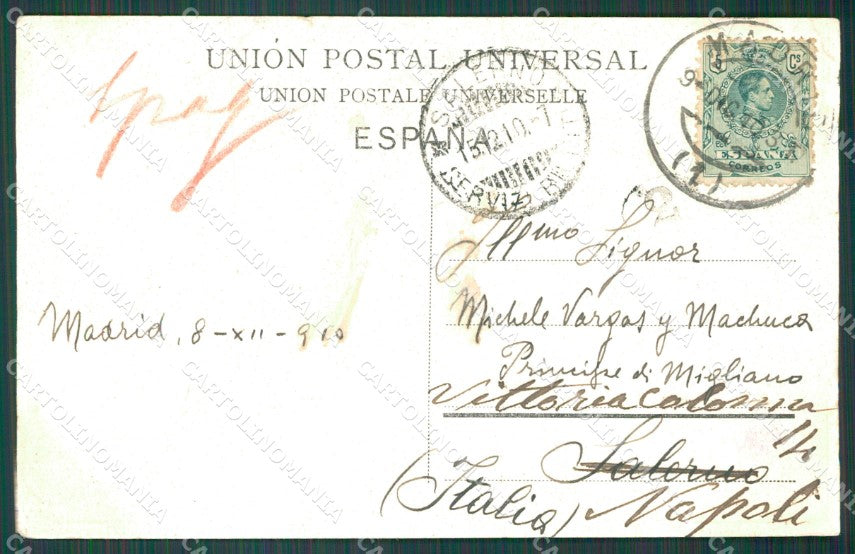 UNIÓN POSTAL UNIVERSAL
UNION POSTALE UNIVERSELLE
ESPAÑA
Spag
SALERNO
13.12.10.-1
SERVIZ
MADR
(1)
5 Cs
ESPAÑA
CORREOS
Madrid, 8-XII-910
Illmo Signor
Michele Vargas y Machuca
Principe di Migliano
Vittoria Colonna
14
Salerno
(Italia) Napoli
CARTOLINOMANIA